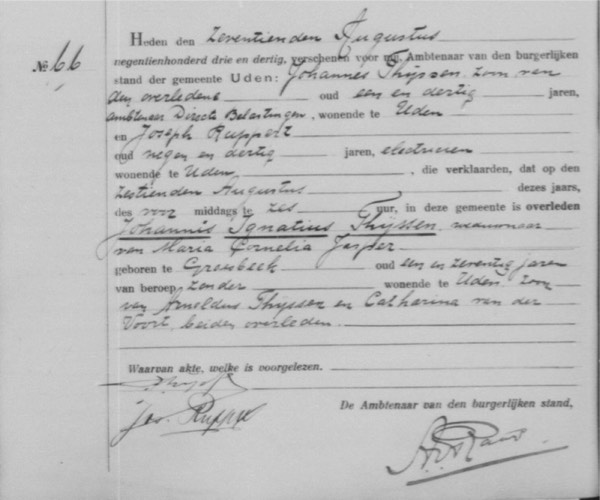 № 66
Heden den zeventienden Augustus
negentienhonderd drie en dertig, verschenen voor mij, Ambtenaar van den burgerlijken
stand der gemeente Uden: Johannes Thijssen, zoon van
den overledene oud een en dertig jaren,
ambtenaar Directe Belastingen, wonende te Uden
en Joseph Ruppert
oud negen en dertig jaren, electricien
wonende te Uden, die verklaarden, dat op den
zestienden Augustus dezes jaars,
des voor middags te zes uur, in deze gemeente is overleden
Johannis Ignatius Thijssen,
van Maria Cornelia Jasper
geboren te Groesbeek oud een en zeventig jaren
van beroep zonder wonende te Uden, zoon
van Arnoldus Thijssen en Catharina van der
Voort, beiden overleden.
Waarvan akte, welke is voorgelezen.
Jos. Ruppert
De Ambtenaar van den burgerlijken stand,